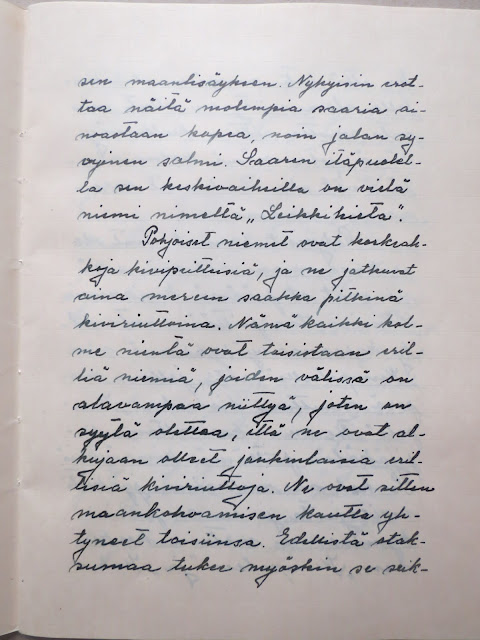 sen maanlisäyksen. Nykyisin erot-
taa näitä molempia saaria ai-
noastaan kapea, noin jalan sy-
vyinen salmi. Saaren itäpuolel-
la sen keskivaiheilla on vielä
niemi nimeltä „Leikkihieta".
Pohjoiset niemet ovat korkeah-
koja kivipeitteisiä, ja ne jatkuvat
aina mereen saakka pitkinä
kiviriuttoina. Nämä kaikki kol-
me nientä ovat toisistaan eril-
liä niemiä, joiden välissä on
alavampaa niittyä, joten on
syytä olettaa, että ne ovat al-
kujaan olleet jonkinlaisia eril-
lisiä kiviriuttoja. Ne ovat sitten
maankohoamisen kautta yh-
tyneet toisiinsa. Edellistä otak-
sumaa tukee myöskin se seik-